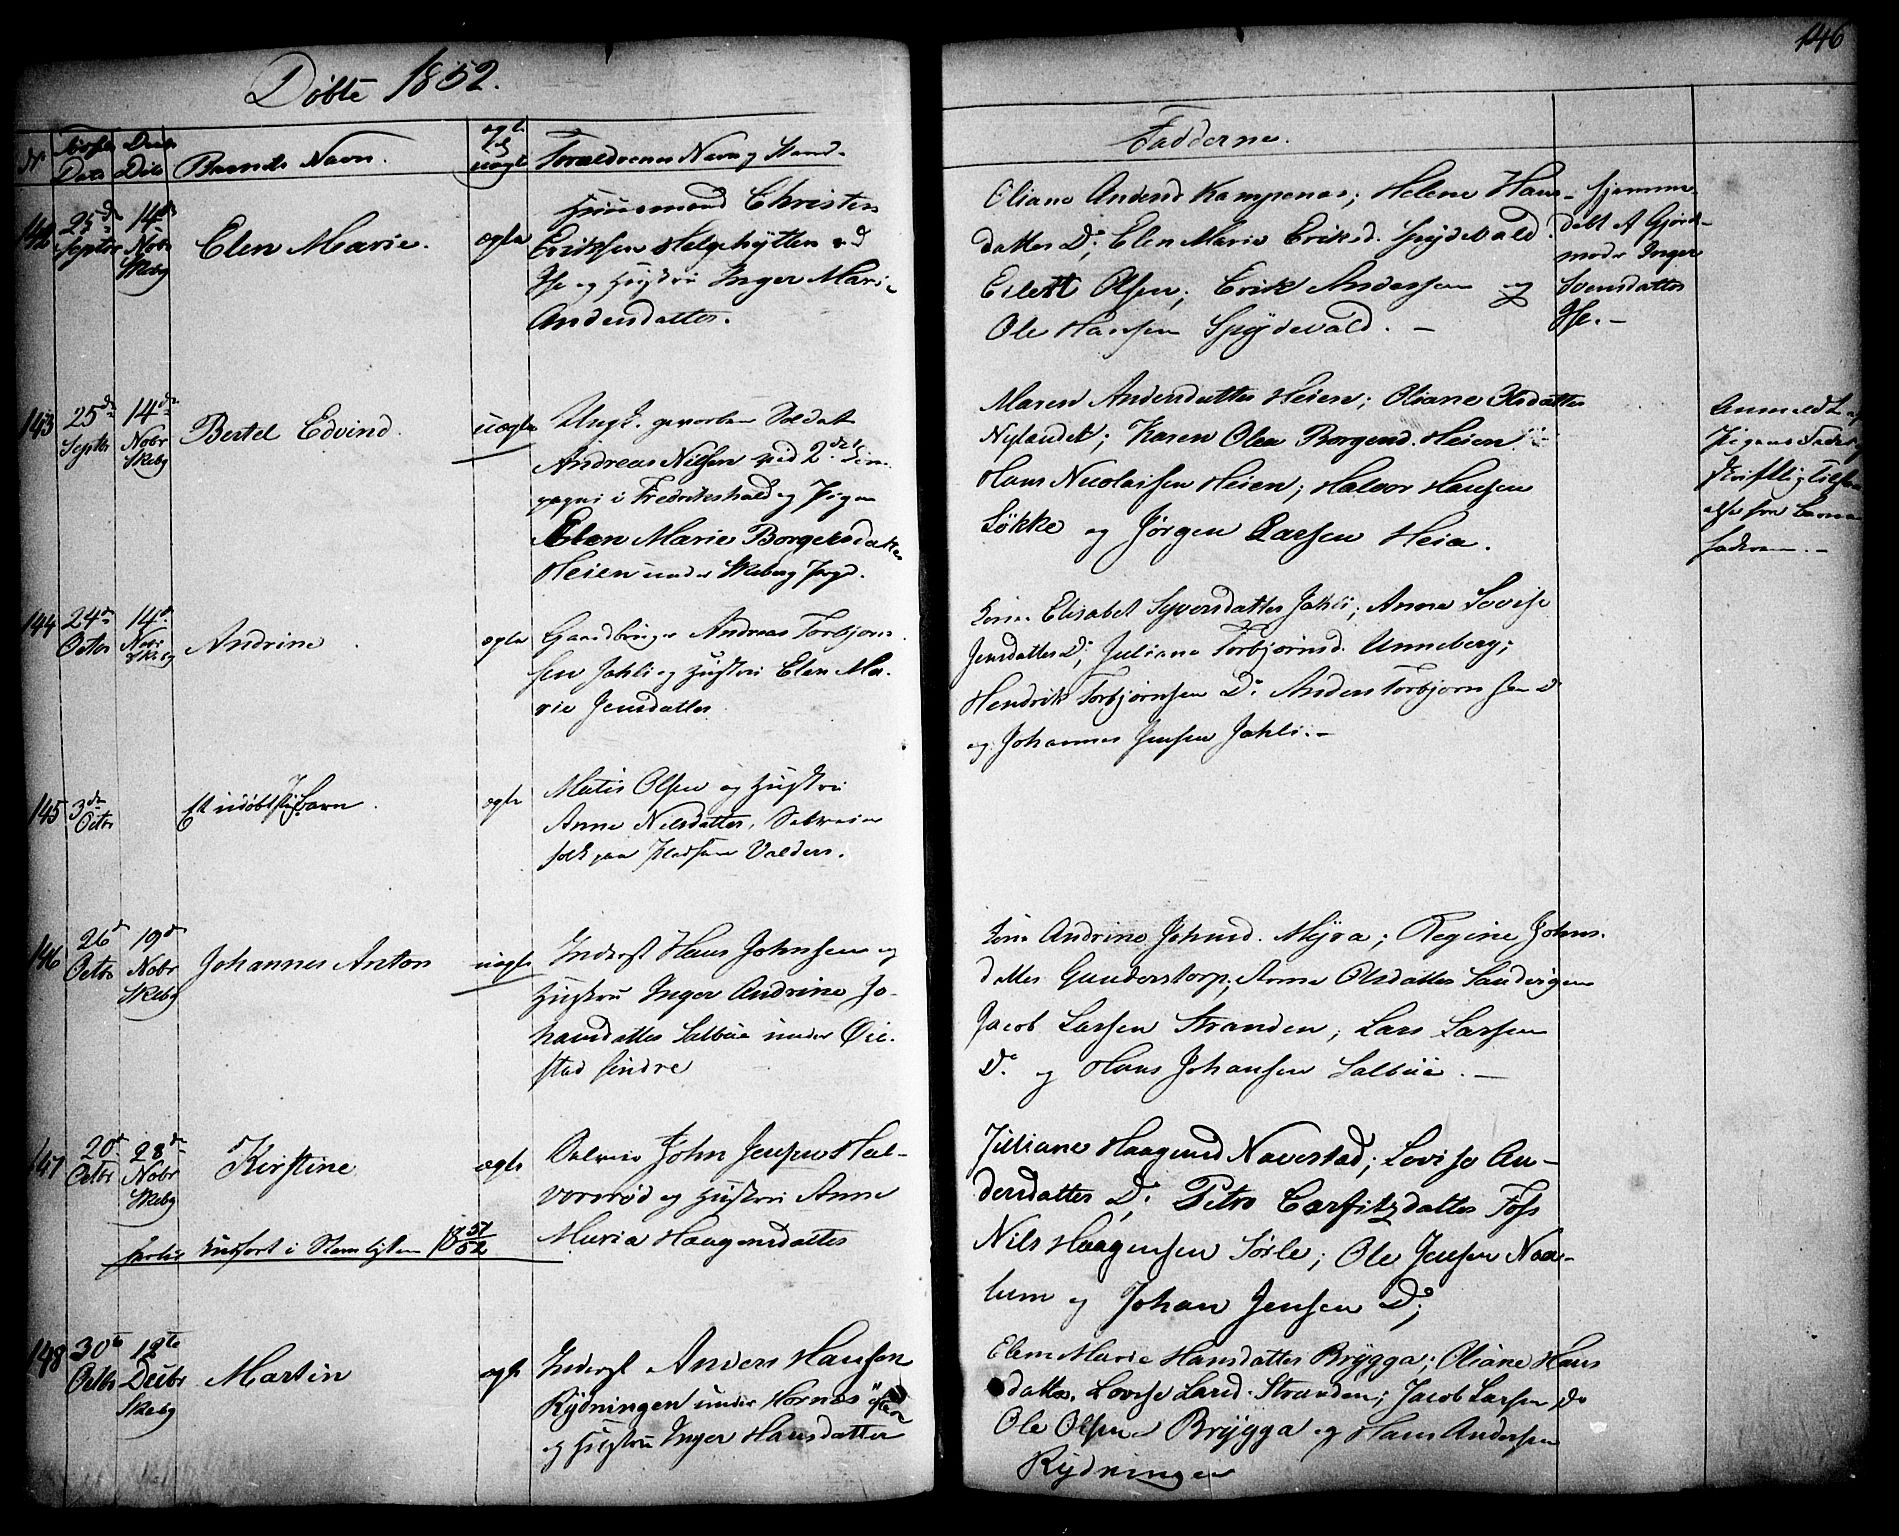 146
Døbte 1852.
No Fødsels Dato Daabs Dato Barnets Navn. ægte el. uægte Forældrenes Navn og Stand.
Fadderne.
142 25de Septbr 14de Nobr Skebg Elen Marie. ægte
Huusmand Christen
Eriksen Helgehytten ved
Ise og Hustru Inger Marie
Andersdatter.
Oliane Andersd Kampenæs; Helene Hans-
datter Do; Elen Marie Eriksd. Spydevold.
Eilert Olsen; Erik Andersen og
Ole Hansen Spydevold. —
Hjemme-
døbt af Gjord-
moder Inger
Svensdatter
Ise. —
143 25de Septbr 14de Nobr Skebg Bertel Edvind. uægte
Ungk. geworben Soldat
Andreas Nilsen ved 2det Com-
pagni i Fredrikshald og Pigen
Elen Marie Borgersdatter
Heien under Skeberg Prgd.
Maren Andersdatter Heien; Oliane Olsdatter
Nylandet; Karen Olea Borgersd. Heien
Hans Nicolaisen Heien; Halvor Hansen
Løkke og Jørgen Larsen Heia.
Anmeldt af
Pigens Fader
skriftlig tilstaa-
else fra Barne-
faderen. —
144 24de Octbr 14de Nobr Skebg Andrine ægte
Gaardbruger Andreas Torbjørn-
sen Jahli og Hustru Elen Ma-
rie Jensdatter
Elisabet Syversdatter Jahli; Anne Lovise
Jensdatter Do; Juliane Torbjørnsd. Unneberg;
Hendrik Torbjørnsen Do. Anders Torbjørnsen Do
og Johannes Jensen Jahli. —
145 3de Octbr Et udøbt Barn. ægte
Matis Olsen og Hustru
Anne Nilsdatter,
folk paa Valders.
146 26de Octbr 19de Nobr Skebg Johannes Anton uægte
Inderst Hans Johnsen og
Hustru Inger Andrine Jo-
hansdatter Salbue under Øie-
stad søndre
Andrine Johnsd. Myra; Regine Johns-
datter Gunderstorp; Anne Olsdatter Sandvigen
Jacob Larsen Stranden; Lars Larsen
Do. og Hans Johansen Salbue. —
147 20de Octbr 28de Nobr Skebg Kirstine ægte
John Jensen Hal-
vorsrød og Hustru Anne
Maria Haagensdatter
indført i Nemligsten 1851/52
Juliane Haagensd Navestad; Lovise An-
dersdatter Do; Petro Carsitzdatter Foss
Nils Haagensen Sørle; Ole Jensen Naa-
lum og Johan Jensen Do;
148 30te Octbr 12te Decbr Skebg Martin ægte
Inderst Anders Hansen
Rydningen under Hornæs
og Hustru Inger Hansdatter
Elen Marie Hansdatter Brygga; Oliane Hans
datter, Lovise Larsd. Stranden; Jacob Larsen Do
Ole Olsen Brygga og Hans Andersen
Rydningen